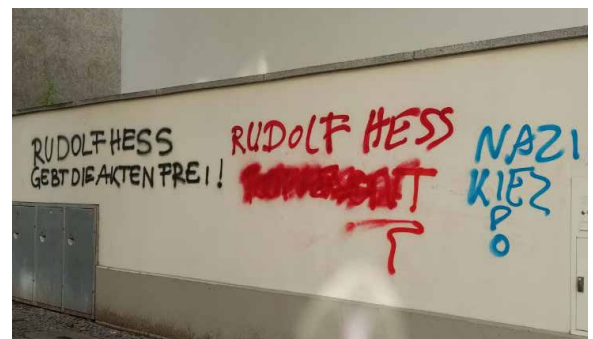 RUDOLF HESS
GEBT DIE AKTEN FREI!
RUDOLF HESS
NAZI
KIEZ
?